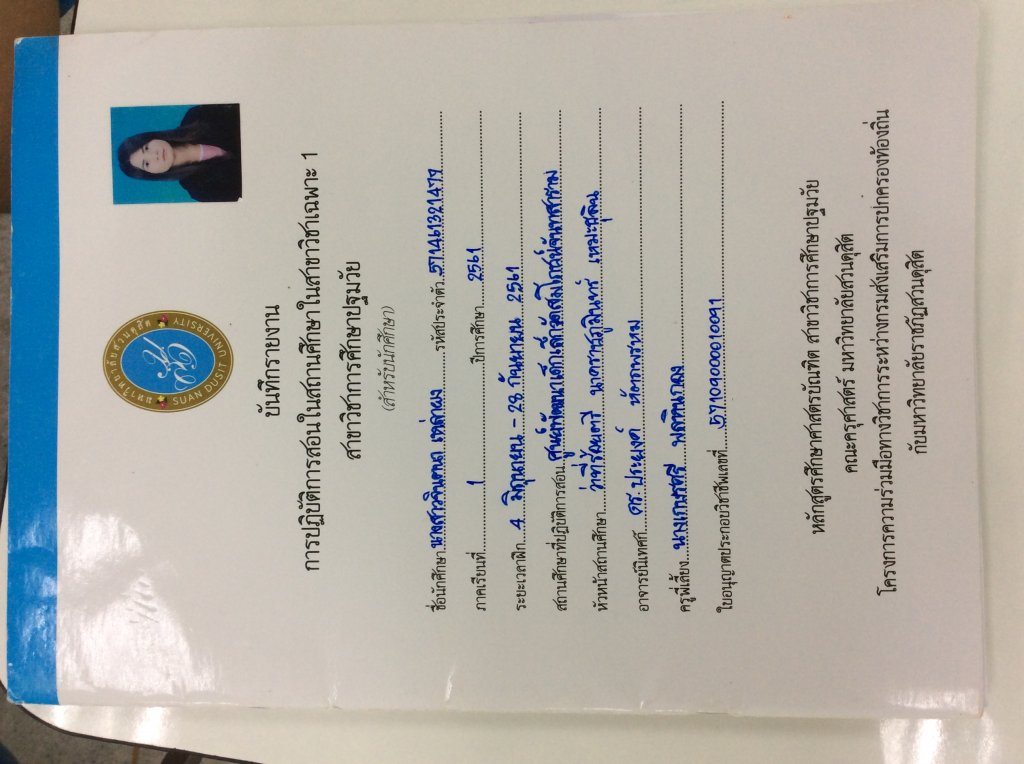 มหาวิทยาลัยสวนดุสิต
SUAN DUSIT UNIVERSITY
บันทึกรายงาน
การปฏิบัติการสอนในสถานศึกษาในสาขาวิชาเฉพาะ 1
สาขาวิชาการศึกษาปฐมวัย
(สำหรับนักศึกษา)
ชื่อนักศึกษา นางสาวจินตนา เหล่าผง รหัสประจำตัว 571461321479
ภาคเรียนที่ 1 ปีการศึกษา 2561
ระยะเวลาฝึก 4 มิถุนายน - 28 กันยายน 2561
สถานศึกษาที่ปฏิบัติการสอน ศูนย์พัฒนาเด็กเล็กวัดสมโภชน์จันทาราม
หัวหน้าสถานศึกษา ว่าที่ร้อยตรี เหมะธุลิน
อาจารย์นิเทศก์ ดร.ประยงค์ หัตถพรหม
ครูพี่เลี้ยง นางเกษรศรี พลทินกลง
ใบอนุญาตประกอบวิชาชีพเลขที่ 57109000010091
หลักสูตรศึกษาศาสตรบัณฑิต สาขาวิชาการศึกษาปฐมวัย
คณะครุศาสตร์ มหาวิทยาลัยสวนดุสิต
โครงการความร่วมมือทางวิชาการระหว่างกรมส่งเสริมการปกครองท้องถิ่น
กับมหาวิทยาลัยราชภัฏสวนดุสิต